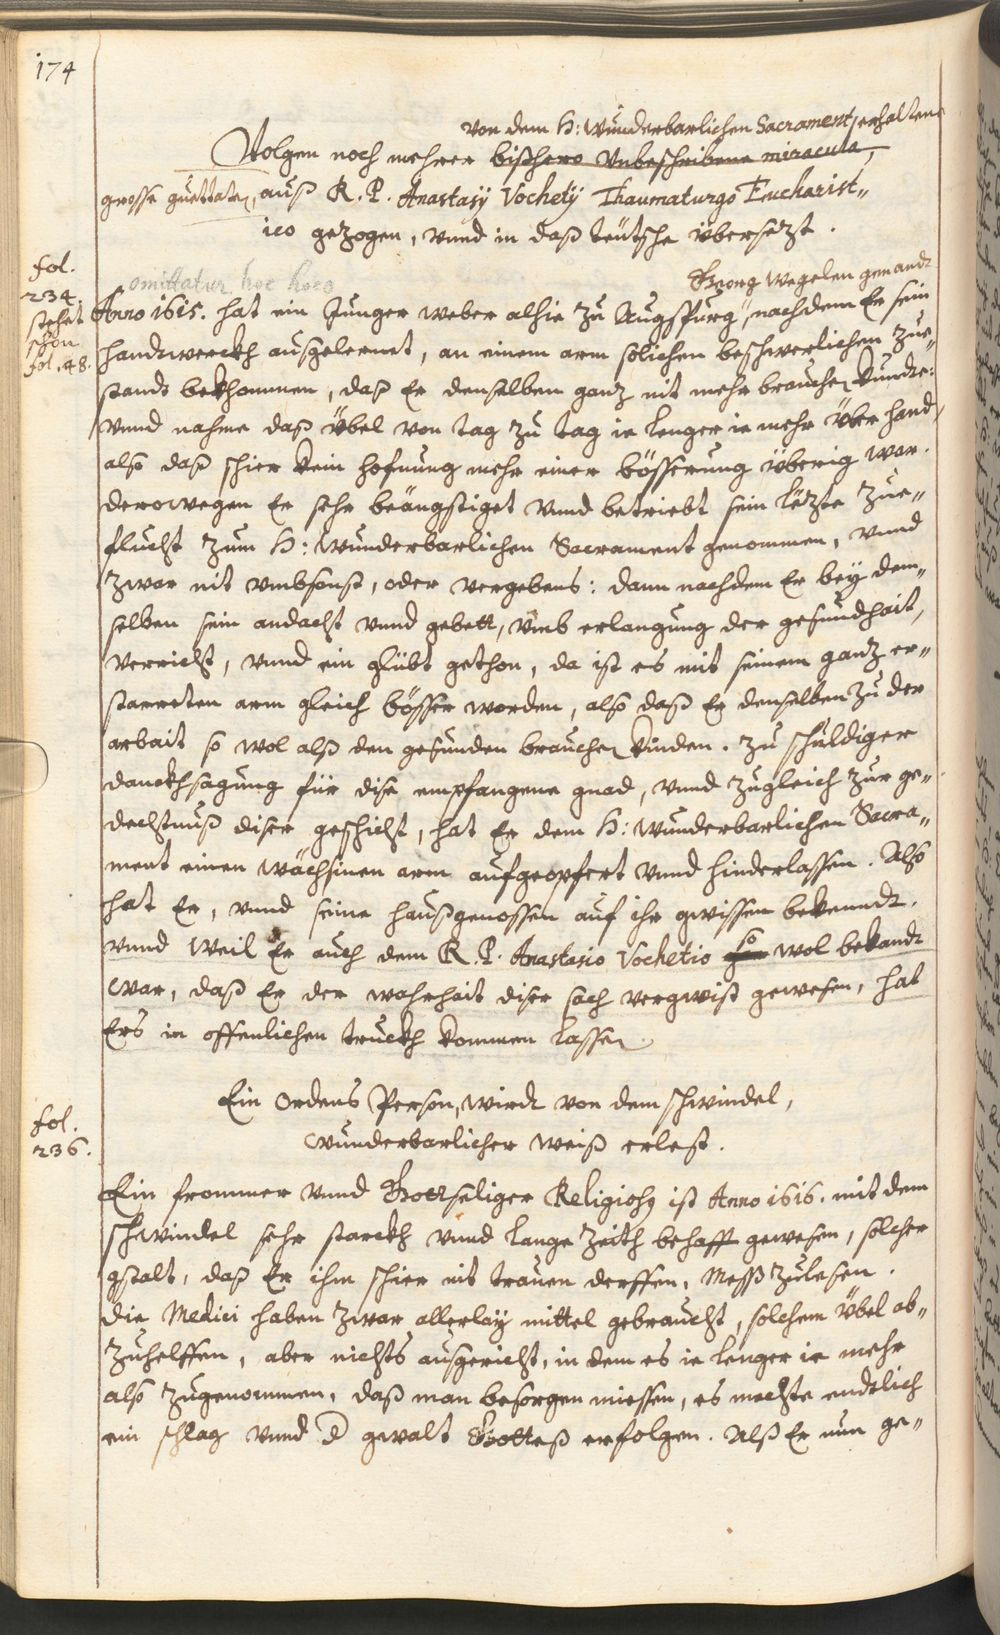 174
von dem H: Wunderbarlichen Sacrament erhaltene
Volgen noch mehrer bißhero Unbeschribene miracula,
grosse guettate, auß R. P. Anastasÿ Vochetÿ Thaumaturgo Eucharist„
ico gezogen, vnnd in daß teütsche übersezt.
fol.
234.
stehet
schon
fol. 48.
omittatur hoc
Georg Wegelen genandt
Anno 1615. hat ein Junger weber alhie zu Augspurg, nachdem Er sein
handtwerckh ausgelernet, an einem arm solichen beschwerlichen zue„
standt bekhommen, daß Er denselben ganz nit mehr brauchen kundte:
Vnnd nahme daß übel von tag zu tag ie lenger ie mehr überhand,
also daß schier kein hofnung mehr einer bösserung überig war.
derowegen Er sehr beängstiget vnnd betriebt sein letzte Zue„
flucht zum H: Wunderbarlichen Sacrament genommen, vnnd
zwar nit vmbsonst, oder vergebens: dann nachdem Er beÿ dem„
selben sein andacht vnnd gebett, vmb erlangung der gesundhait,
verricht, vnnd ein glübt gethon, da ist es mit seinem ganz er„
starreten arm gleich bösser worden, also daß Er denselben zu der
arbait so wol alß den gesunden brauchen kinden. Zu schuldiger
danckhsagung für dise empfangene gnad, vnnd zugleich zur ge„
dechtnuß diser geschicht, hat Er dem H: Wunderbarlichen Sacra„
ment einen wächsinen arm aufgeopfert vnnd hinderlassen. Also
hat Er, vnnd seine haußgenossen auf ihr gwissen bekenndt.
vnnd Weil Er auch dem R. P. Anastasio Vochetio so wol bekandt
war, daß Er der wahrhait diser sach vergwist gewesen, hat
Ers in offentlichen truckh kommen lassen.
Ein Ordens Person, wirdt von dem schwindel,
wunderbarlicher weiß erlest.
fol.
236.
Ein frommer vnnd Gottseliger Religiosus ist Anno 1616. mit dem
schwindel sehr starckh vnnd lange Zeith behafft gewesen, solcher
gstalt, daß Er ihm schier nit trauen derffen, Mess zulesen.
die Medici haben zwar allerlaÿ mittel gebraucht, solchem übel ab„
zuhelffen, aber nichts ausgericht, in dem es ie lenger ie mehr
also zugenommen, daß man besorgen miessen, es mechte endtlich
ein schlag vnnd d gewalt Gotteß erfolgen. Alß Er nun ge„